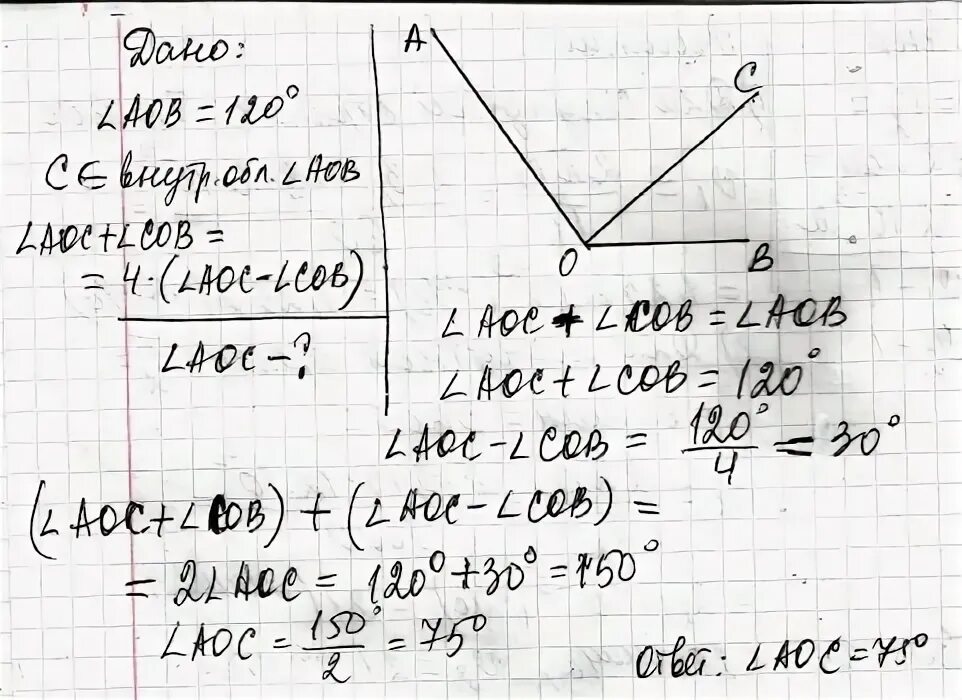 Дано:
∠AOB = 120°
C ∈ внутр. обл. ∠AOB
∠AOC + ∠COB =
= 4 · (∠AOC − ∠COB)
∠AOC − ?
A
C
O
B
∠AOC + ∠COB = ∠AOB
∠AOC + ∠COB = 120°
∠AOC − ∠COB = 120°/4 = 30°
(∠AOC + ∠COB) + (∠AOC − ∠COB) =
= 2∠AOC = 120° + 30° = 150°
∠AOC = 150°/2 = 75°
Ответ: ∠AOC = 75°